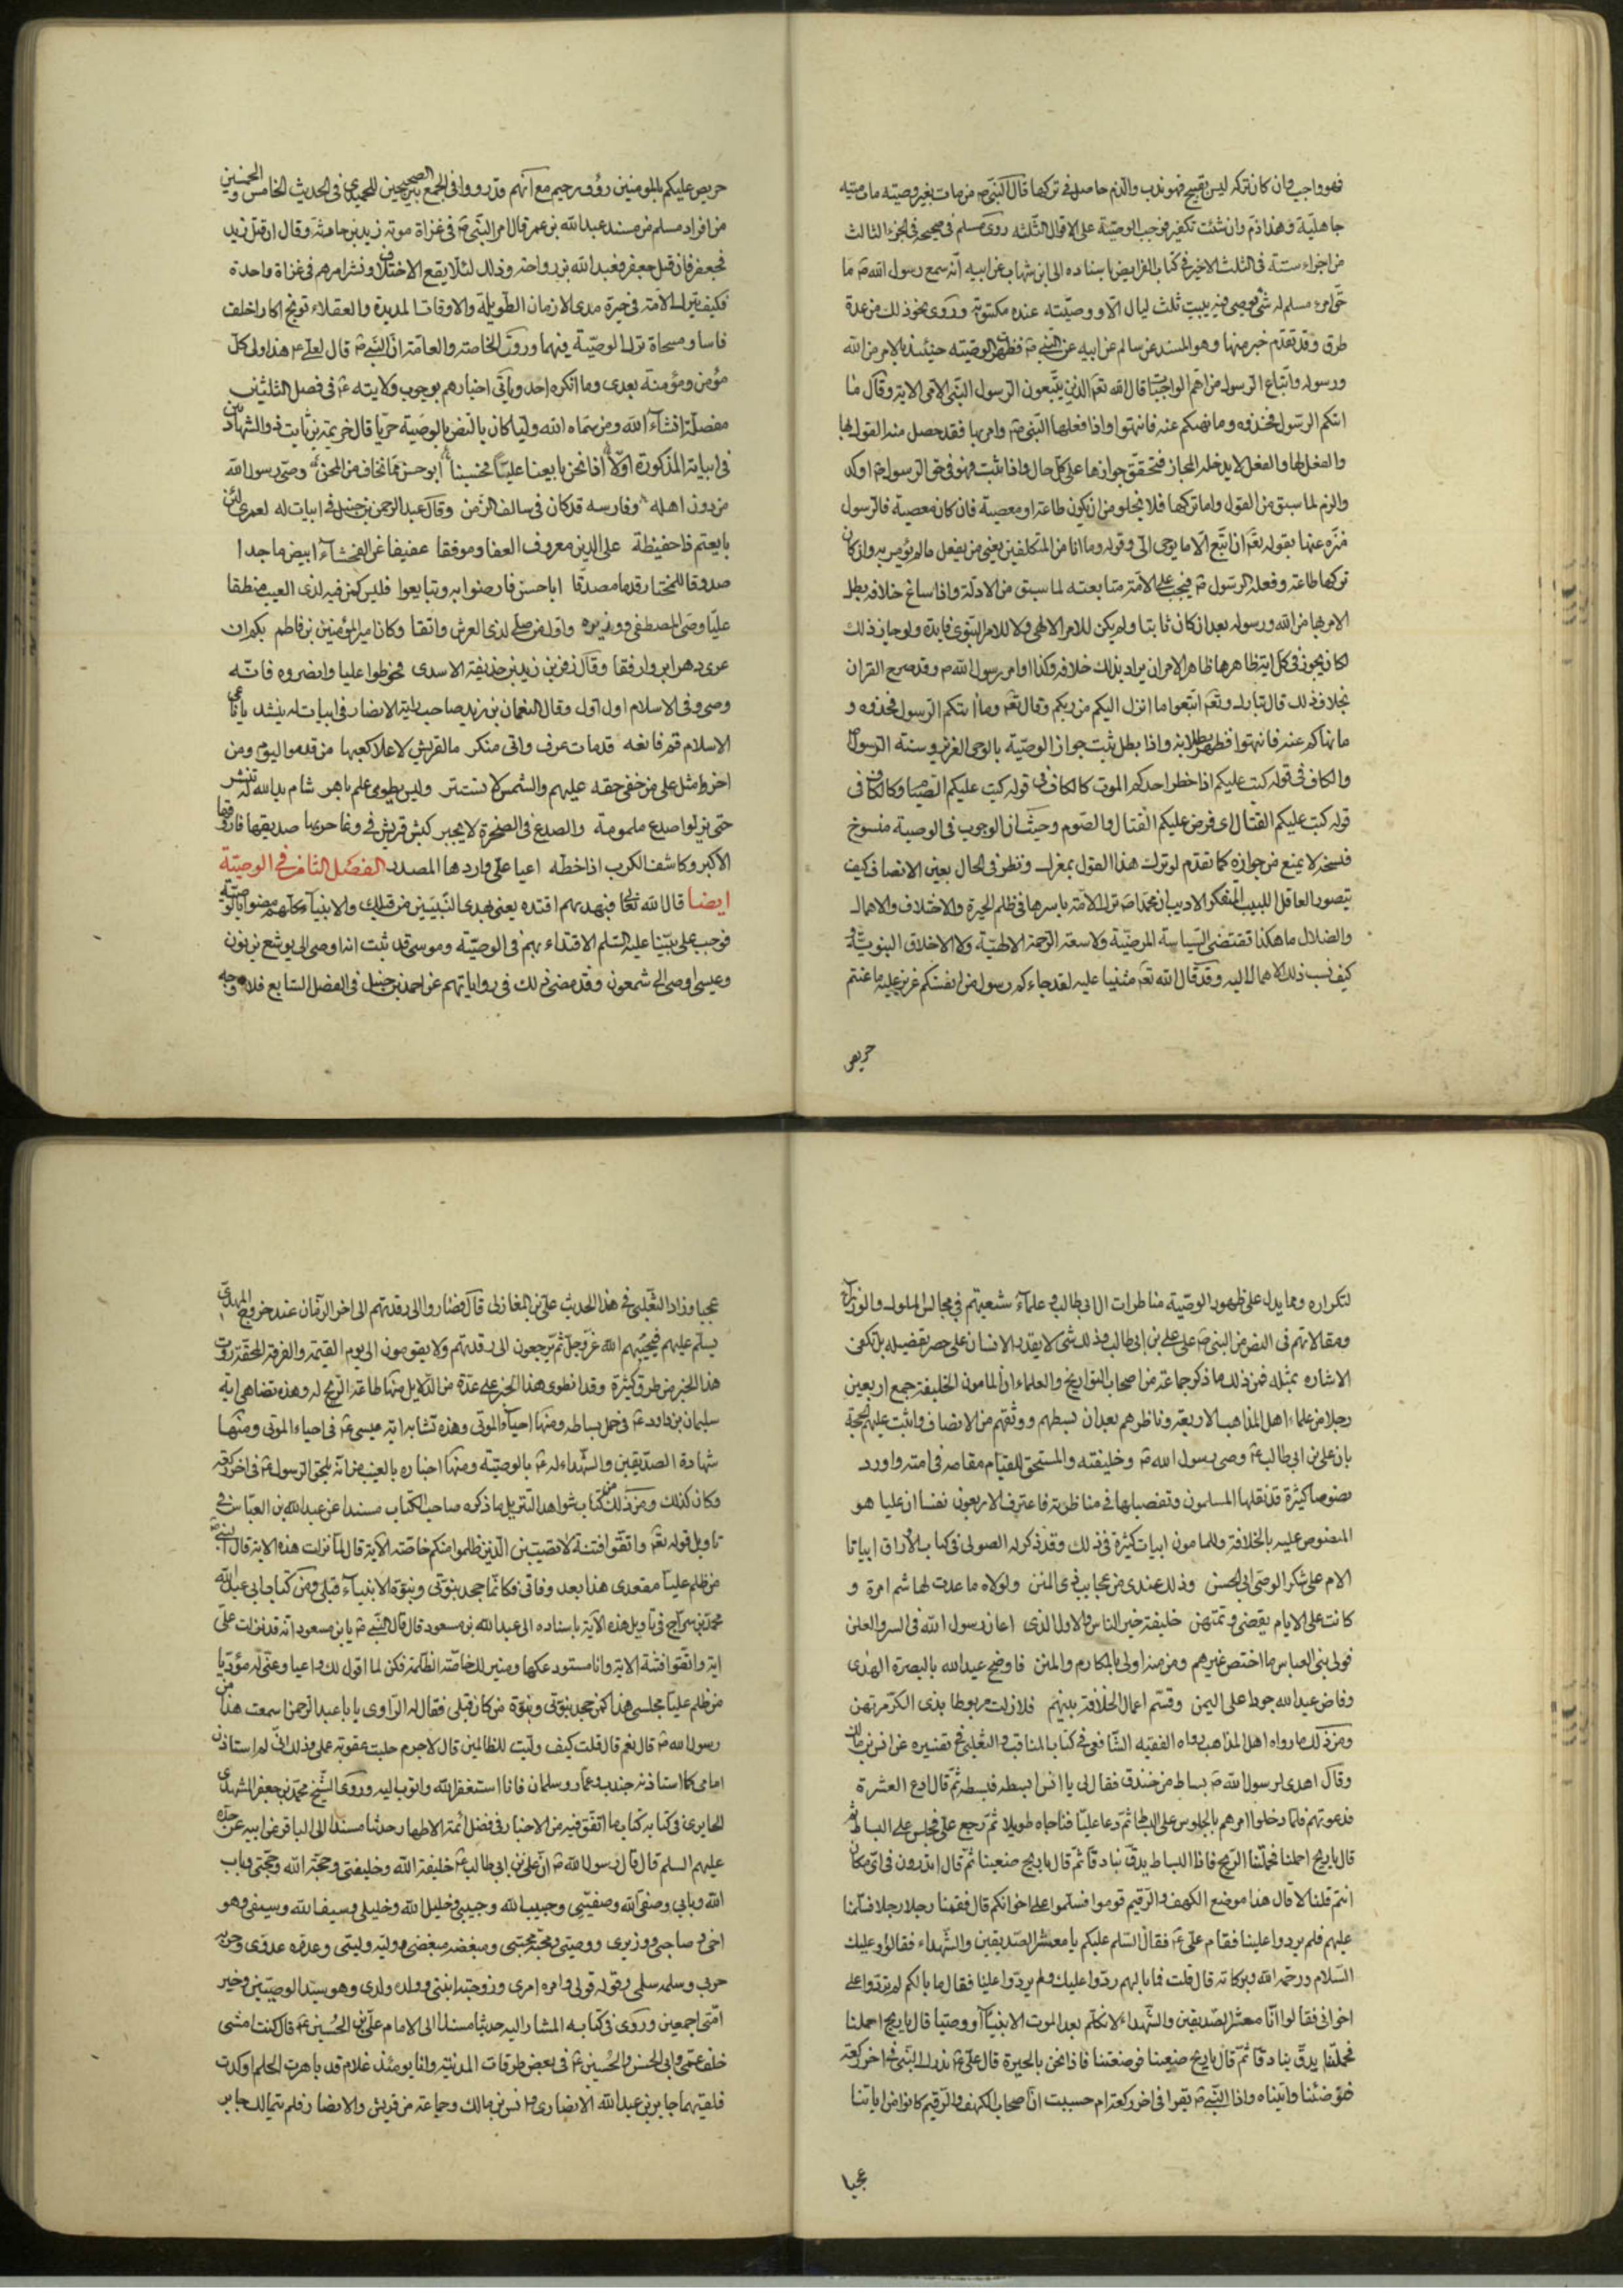 فهو واجب وان كان تركه ليس بقبيح فهو ندب والذم حاصل في تركها قال النبي ص من مات بغير وصيته مات ميتة
جاهلية وهذا ذم وان شئت تكفير فوجب الوصية على الاقوال الثلثه روى مسلم في صحيحه في الجزء الثالث
من اجزاء ستة في الثلث الاخير في كتاب الفرايض باسناده الى ابن شهاب عن ابيه انه سمع رسول الله ص ما
حق امرء مسلم له شئ يوصي فيه يبيت ثلث ليال الا ووصيته عنده مكتوبة وروى نحو ذلك من عدة
طرق وقد تقدم خبر منها وهو المسند عن سالم عن ابيه عن النبي ص فظهر ان الوصيته حينئذ بالامر من الله
ورسوله واتباع الرسول من اهم الواجبات قال الله تعم الذين يتبعون الرسول النبي الامي الاية وقال ما
اتيكم الرسول فخذوه وما نهيكم عنه فانتهوا واذا فعلها النبي ص وامر بها فقد حصل منه القول بها
والفعل لها والفعل لا يدخله المجاز فتحقق جوازها على كل حال واذا ثبت فهو في حق الرسول ص اوكد
والزم لما سبق من القول واما تركها فلا يخلو من ان يكون طاعة او معصية فان كان معصية فالرسول
منزه عنها بقوله تعم ان اتبع الا ما يوحى الي وقوله وما انا من المتكلفين يعني من يفعل ما لم يؤمر به وان كان
تركها طاعة وفعله الرسول ص فيجب على الامة متابعته لما سبق من الادلة واذا ساغ خلافه بطل
الامر بها من الله ورسوله بعد ان كان ثابتا ولم يكن للامر الالهي ولا للامر النبوي فايدة ولو جاز ذلك
لكان يجوز في كل اية ظاهرها ظاهر الامر ان يراد بذلك خلافه وكذا اوامر رسول الله ص وقد صرح القران
بخلاف ذلك قال تبارك وتعم اتبعوا ما انزل اليكم من ربكم وقال تعم وما اتيكم الرسول فخذوه و
ما نهاكم عنه فانتهوا فظهر بطلانه واذا بطل ثبت جواز الوصية بالوحي العزيز وسنة الرسول ص
والكاف في قوله كتب عليكم اذا حضر احدكم الموت كالكاف في قوله كتب عليكم الصيام وكالكاف في
قوله كتب عليكم القتال اي فرض عليكم القتال والصوم وحيث ان الوجوب في الوصية منسوخ
فنسخه لا يمنع من جوازه كما تقدم لو ترك هذا القول بمغزل ونظر في الحال بعين الانصاف كيف
يتصور العاقل اللبيب المتفكر الاديب ان محمدا ص ترك الامة باسرها في ظلم الحيرة والاختلاف والاهمال
والضلال ما هكذا تقتضي السياسة المرضية ولا سعة الرحمة الالهية ولا الاخلاق النبوية و
كيف نسب ذلك الاهمال اليه وقد قال الله تعم مثنيا عليه لقد جاءكم رسول من انفسكم عزيز عليه ما عنتم
حريص
حريص عليكم بالمومنين رؤف رحيم مع انهم قد رووا في الجمع بين الصحيحين للحميدي في الحديث الخامس والخمسين
من افراد مسلم من مسند عبد الله بن عمر قال امر النبي ص في غزاة موته زيد بن حارثة وقال ان قتل زيد
فجعفر فان قتل جعفر فعبد الله بن رواحة وذلك لئلا يقع الاختلاف ونشر امرهم في غزاة واحدة
فكيف يترك الامة في حيرة مدى الازمان الطويلة والاوقات المديدة والعقلاء توبخ اكارا خلف
فاسا ومسحاة ترك الوصية فيهما وروت الخاصة والعامة ان النبي ص قال لعلي ع هذا ولي كل
مؤمن ومؤمنة بعدي وما انكره احد وياتي اخبارهم بوجوب ولايته ع في فصل الثلثين
مفصلة انشاء الله ومن سماه الله وليا كان بالنص بالوصية حريا قال خزيمة بن ثابت ذو الشهادتين
في ابياته المذكورة اولا اذا نحن بايعنا عليا فحسبنا ابو حسن مما نخاف من المحن وصي رسول الله
من دون اهله وفارسه قد كان في سالف الزمن وقال عبد الرحمن بن حنبل في ابيات له لعمري لئن
بايعتم ذا حفيظة على الدين معروف العفا وموفقا عفيفا عن الفحشاء ابيض ماجدا
صدوقا للمختار قدما مصدقا ابا حسن فارضوا به وتبايعوا فليس كمن فيه لذي العيب منطقا
عليا وصي المصطفى ووزيره واول من صلى لذي العرش واتقا وكان امير المؤمنين بن فاطم بكم ان
عرى دهر ابر وارفقا وقال زفر بن زيد بن حذيفة الاسدي فحوطوا عليا وانصروه فانه
وصي وفي الاسلام اول اول وقال النعمان بن زيد صاحب راية الانصار في ابيات له ينشد يا ناعي
الاسلام قم فانعه قد مات عرف واتى منكر ما لقريش لا علا كعبها من قدموا اليوم ومن
اخروا مثل علي من خفي حقه عليهم والشمس لا تستتر وليس يطوى علم باهر شام يد الله له تنشر
حتى يزيلوا صدع ملمومة والصدع في الصخرة لا يجبر كبش قريش في وغا حربها صديقها فاروقها
الاكبر وكاشف الكرب اذا خطة اعيا على واردها المصدر الفصل الثامن في الوصية
ايضا قال الله تعالى فبهديهم اقتده يعني بهدى النبيين من قبلك والانبياء كلهم مضوا بالوصية
فوجب على نبينا عليه السلم الاقتداء بهم في الوصية وموسى قد ثبت انه اوصى الى يوشع بن نون
وعيسى اوصى الى شمعون وقد مضى ذلك في رواياتهم عن احمد بن حنبل في الفصل السابع فلا وجه
لتكراره ومما يدل على ظهور الوصية مناظرات ال ابي طالب وعلماء شيعتهم في مجالس الملوك والوزراء
ومقالاتهم في النص من النبي ص على علي بن ابي طالب وذلك شئ لا يقدر الانسان على حصر تفصيله بل تكفي
الاشارة بمثله فمن ذلك ما ذكر جماعة من اصحاب التواريخ والعلماء ان المامون الخليفة جمع اربعين
رجلا من علماء اهل المذاهب الاربعة وناظرهم بعد ان بسطهم ووثقهم من الانصاف واثبت عليهم الحجة
بان علي بن ابي طالب ع وصي رسول الله ص وخليفته والمستحق للقيام مقامه في امته واورد
نصوصا كثيرة قد نقلها المسلمون وتفصيلها في مناظرته فاعترف الاربعون نفسا ان عليا هو
المنصوص عليه بالخلافة وللمامون ابيات كثيرة في ذلك وقد ذكر له الصولي في كتاب الاوراق ابياتا
الام على شكر الوصي ابي الحسن وذلك عندي من عجايب ذي المنن ولولاه ما عدت لهاشم امرة و
كانت على الايام تقضى وتمتهن خليفة خير الناس والاول الذي اعان رسول الله في السر والعلن
فولى بني العباس ما اختص غيرهم ومن منه اولى بالمكارم والمنن فاوضح عبد الله بالبصرة الهدى
وفاض عبيد الله جودا على اليمن وقسم اعمال الخلافة بينهم فلا زلت مربوطا بذي الكرم مرتهن
ومن ذلك ما رواه اهل المذاهب رواه الفقيه الشافعي في كتاب المناقب والثعلبي في تفسيره عن انس بن مالك
وقال اهدي لرسول الله ص بساط من خندق فقال لي يا انس ابسطه فبسطته ثم قال ادع العشرة
فدعوتهم فلما دخلوا امرهم بالجلوس على البساط ثم دعا عليا فناجاه طويلا ثم رجع علي فجلس على البساط ثم
قال يا ريح احملنا فحملتنا الريح فاذا البساط يدف بنا دفا ثم قال يا ريح ضعينا ثم قال اتدرون في اي مكان
انتم قلنا لا قال هذا موضع الكهف والرقيم قوموا فسلموا على اخوانكم قال فقمنا رجلا رجلا فسلمنا
عليهم فلم يردوا علينا فقام علي ع فقال السلم عليكم يا معشر الصديقين والشهداء فقالوا وعليك
السلام ورحمة الله وبركاته قال قلت فما بالهم ردوا عليك ولم يردوا علينا فقال ما بالكم لم تردوا على
اخواني فقالوا انا معشر الصديقين والشهداء لا نكلم بعد الموت الا نبيا او وصيا قال يا ريح احملنا
فحملتنا يدف بنا دفا ثم قال يا ريح ضعينا فوضعتنا فاذا نحن بالحيرة قال علي ع ندرك النبي في اخر ركعة
فتوضئنا واتيناه واذا النبي ص يقرا في اخر ركعة ام حسبت ان اصحاب الكهف والرقيم كانوا من اياتنا
عجبا
عجبا وزاد الثعلبي في هذا الحديث على بن المغازلي قال فصاروا الى رقدتهم الى اخر الزمان عند خروج المهدي
يسلم عليهم فيحييهم الله عز وجل ثم يرجعون الى رقدتهم ولا يقومون الى يوم القيمة والفرقة المحقة روت
هذا الخبر من طرق كثيرة وقد انطوى هذا الخبر على عدة من الدلايل منها طاعة الريح له وهذه تضاهي اية
سليمان بن داود ع في حمل بساطه ومنها احياء الموتى وهذه تشابه اية عيسى ع في احياء الموتى ومنها
شهادة الصديقين والشهداء له ع بالوصية ومنها اخباره بالغيب من انه يلحق الرسول ع في اخر ركعة
وكان كذلك ومن ذلك من كتاب شواهد التنزيل ما ذكره صاحب الكتاب مسندا عن عبد الله بن العباس في
تاويل قوله تعم واتقوا فتنة لا تصيبن الذين ظلموا منكم خاصة الاية قال لما نزلت هذه الاية قال النبي ص
من ظلم عليا مقعدي هذا بعد وفاتي فكانما جحد بنوتي ونبوة الانبياء قبلي ومن كتاب ابي عبد الله
محمد بن سراج في تاويل هذه الاية باسناده الى عبد الله بن مسعود قال قال النبي ص يا بن مسعود انه قد نزلت علي
اية واتقوا فتنة الاية وانا مستودعكها ومسر لك خاصة الظلمة فكن لما اقول لك واعيا وعني له مؤديا
من ظلم عليا مجلسي هذا كمن جحد بنوتي ونبوة من كان قبلي فقال له الراوي يا با عبد الرحمن اسمعت هذا من
رسول الله ص قال نعم قال قلت كيف وليت للظالمين قال لا جرم حلت عقوبة على وذلك اني لم استاذن
امامي كما استاذنه جندب وعمار وسلمان فانا استغفر الله واتوب اليه وروى الشيخ محمد بن جعفر المشهدي
الحايري في كتابه كتاب ما اتفق فيه من الاخبار في فضل ائمة الاطهار حديثا مسندا الى الباقر عن ابيه عن جده
عليهم السلم قال قال رسول الله ص ان علي بن ابي طالب ع خليفة الله وخليفتي وحجة الله وحجتي وباب
الله وبابي وصفي الله وصفيي وحبيب الله وحبيبي وخليل الله وخليلي وسيف الله وسيفي وهو
اخي وصاحبي ووزيري ووصيي ومحبه محبي ومبغضه مبغضي ووليه وليي وعدوه عدوي وحربه
حربي وسلمه سلمي وقوله قولي وامره امري وزوجته ابنتي وولده ولدي وهو سيد الوصيين وخير
امتي اجمعين وروى في كتابه المشار اليه حديثا مسندا الى الامام علي بن الحسين ع قال كنت امشي
خلف عمي وابي الحسن والحسين ع في بعض طرقات المدينة وانا يومئذ غلام قد ناهزت الحلم او كدت
فلقيهما جابر بن عبد الله الانصاري وانس بن مالك وجماعة من قريش والانصار فلم يتمالك جابر